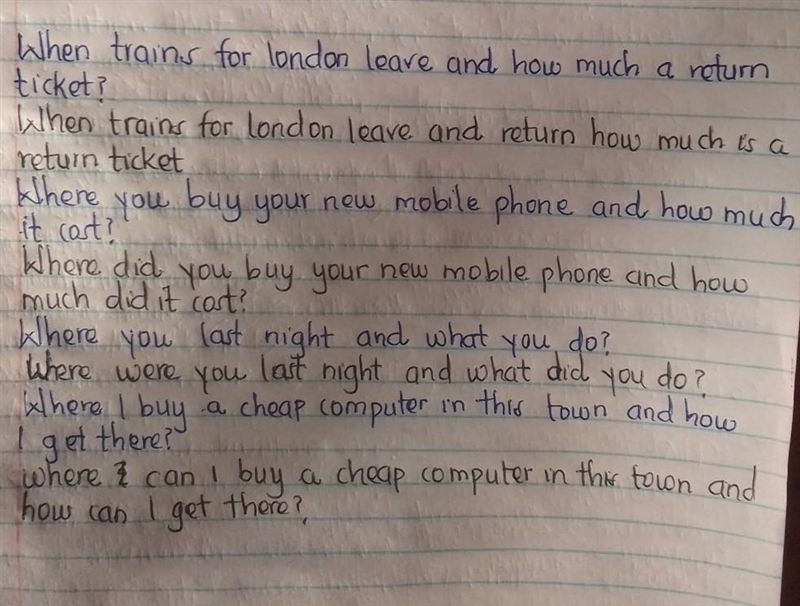 When trains for london leave and how much a return
ticket?
When trains for london leave and return how much is a
return ticket
Where you buy your new mobile phone and how much
it cost?
Where did you buy your new mobile phone and how
much did it cost?
Where you last night and what you do?
Where were you last night and what did you do?
Where I buy a cheap computer in this town and how
I get there?
where can I buy a cheap computer in this town and
how can I get there?